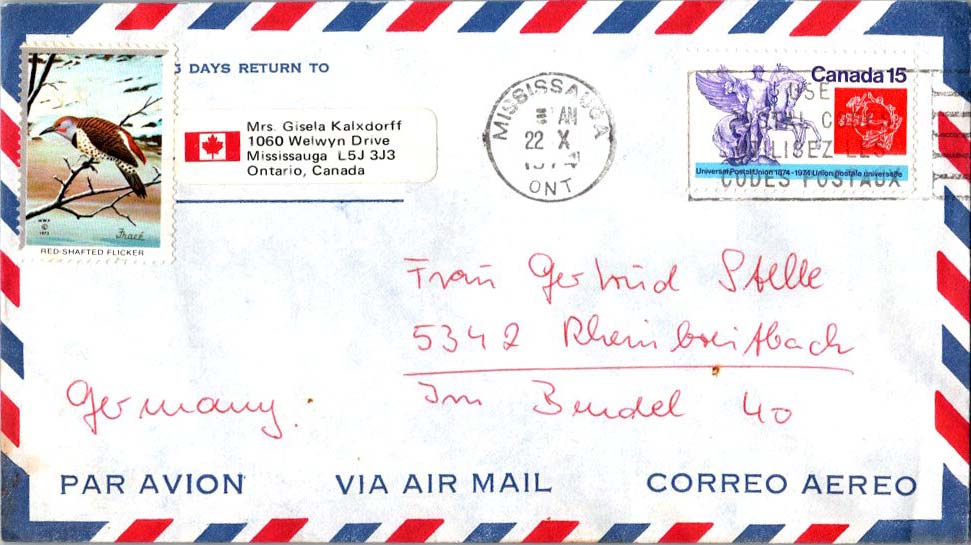 5 DAYS RETURN TO
Mrs. Gisela Kalxdorff
1060 Welwyn Drive
Mississauga L5J 3J3
Ontario, Canada
MISSISSAUGA
AM
22 X
1974
ONT
Canada 15
USE
UTILISEZ LES
CODES POSTAUX
Universal Postal Union 1874-1974 Union postale universelle
WWF
©
1972
Frack
RED-SHAFTED FLICKER
Frau Gertrud Stelle
5342 Rheinbreitbach
Im Bendel 40
Germany.
PAR AVION VIA AIR MAIL CORREO AEREO